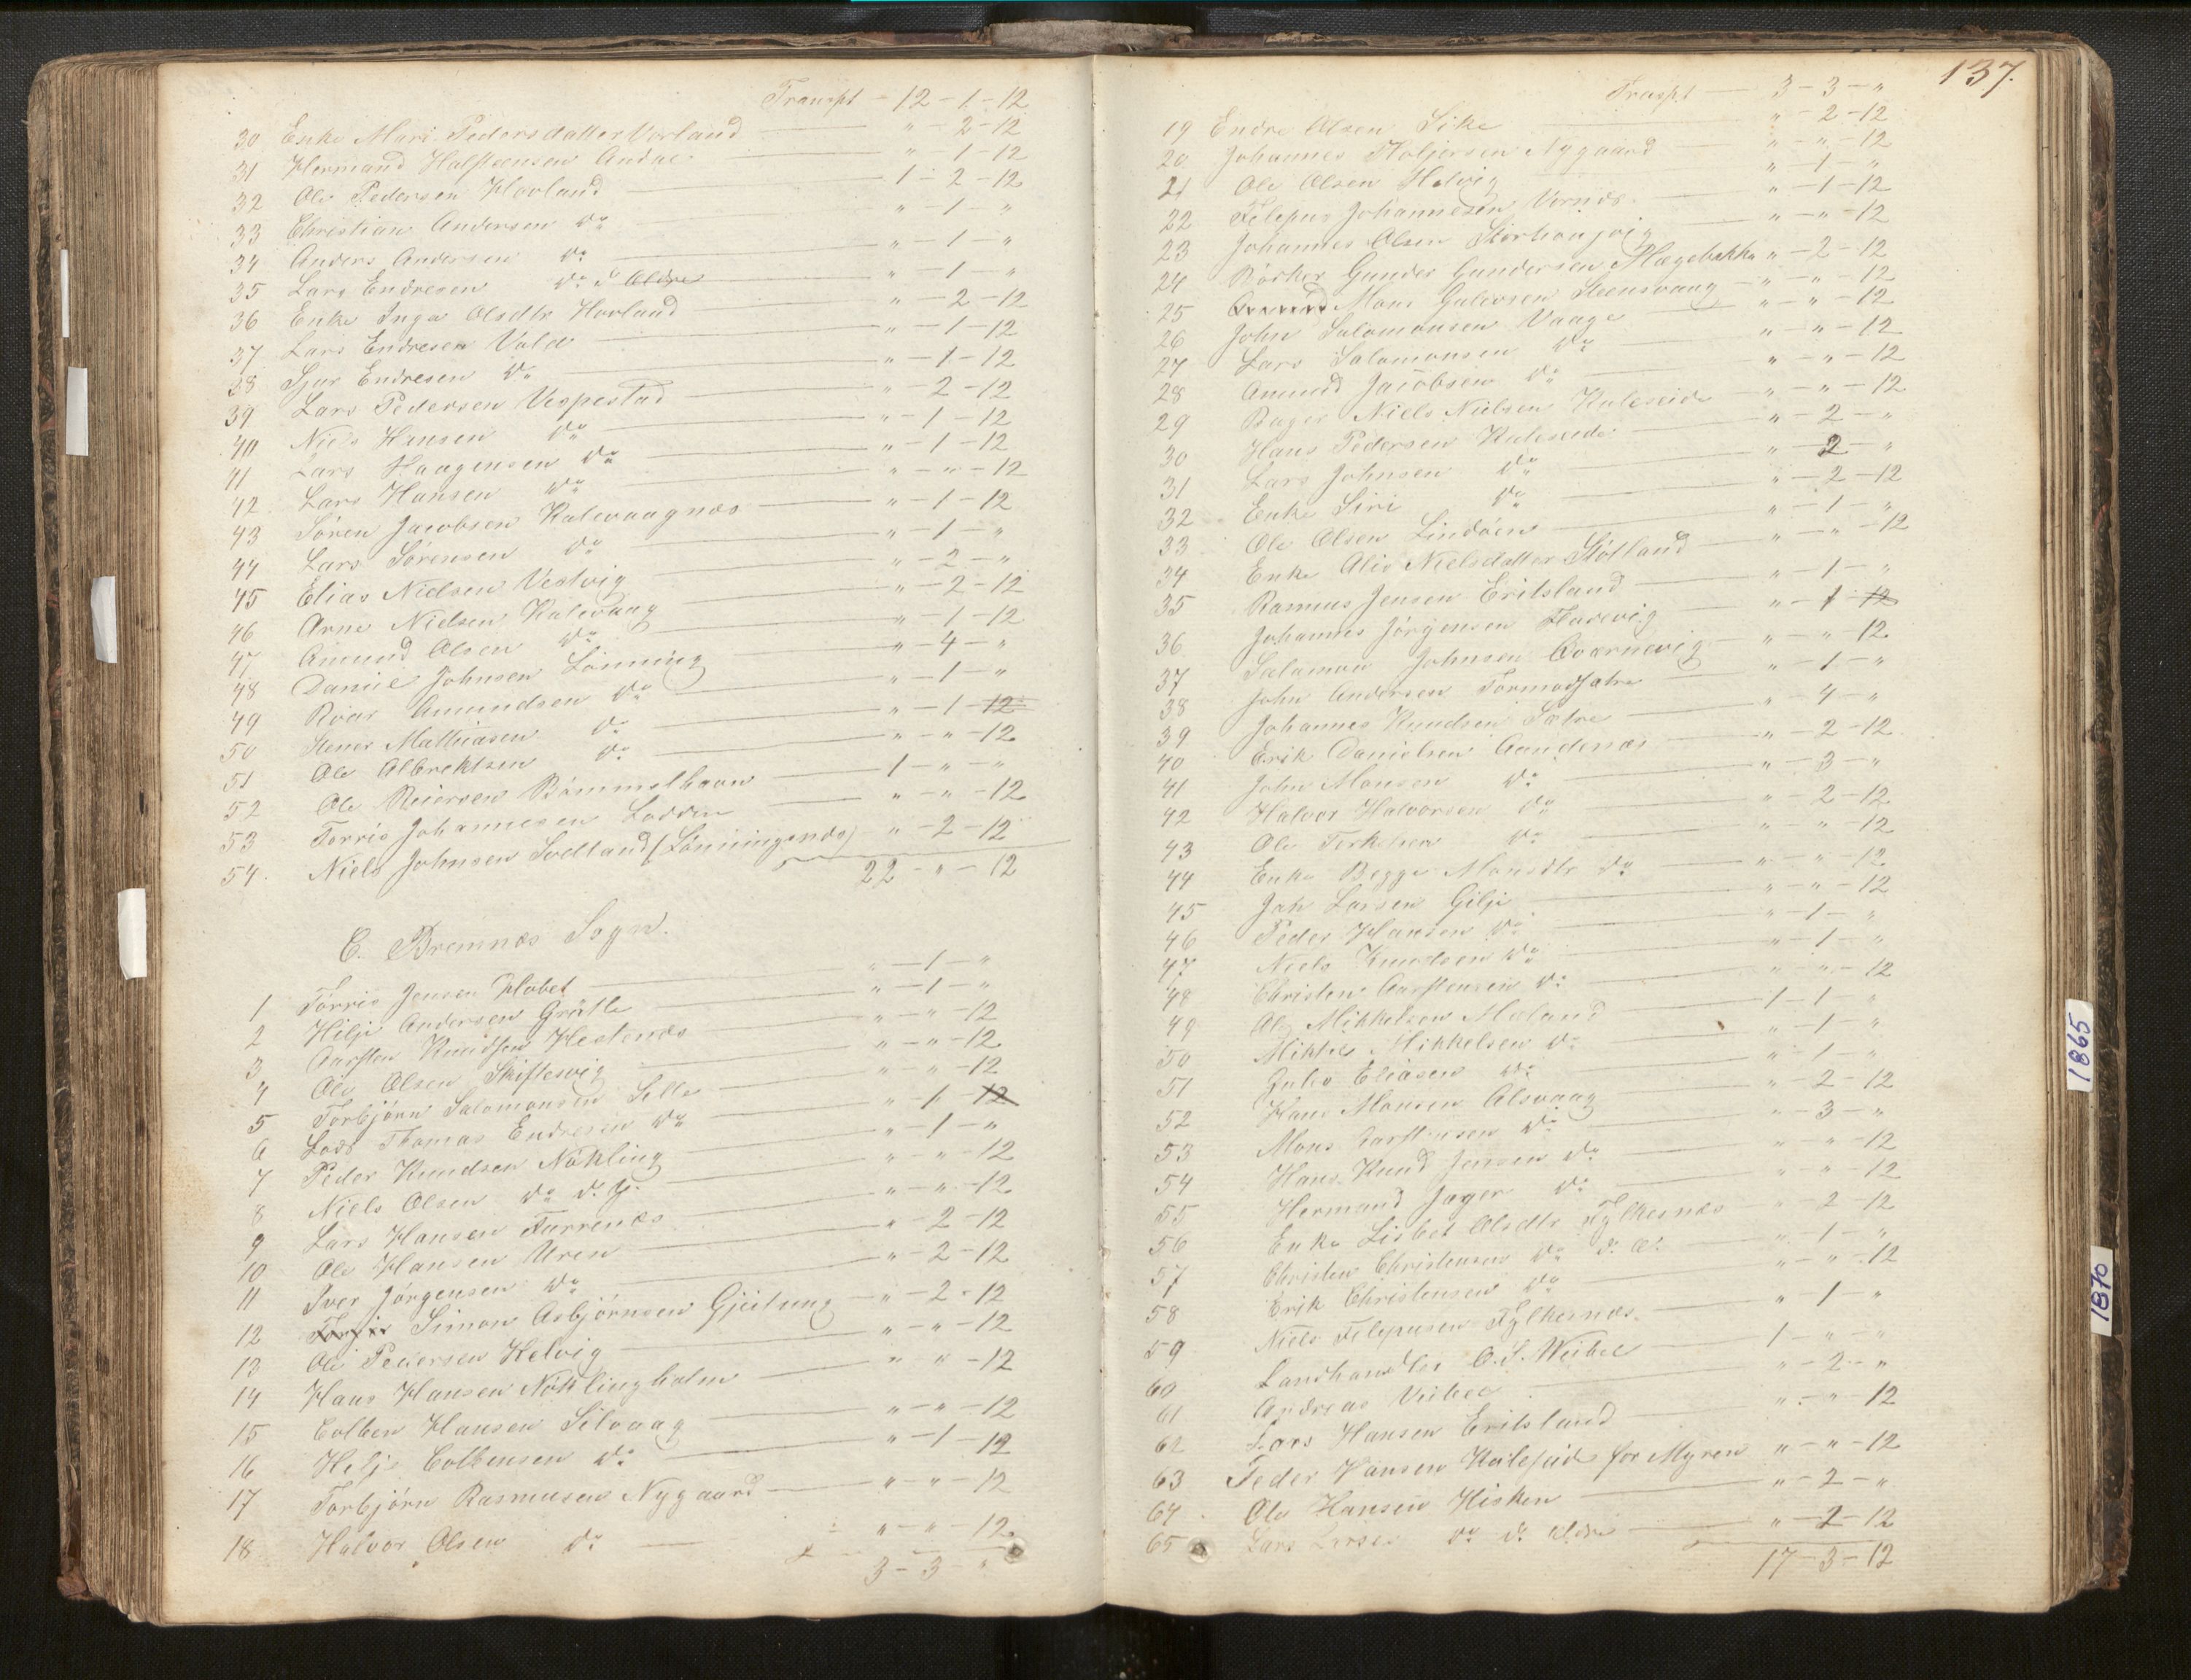 Transpt - 12 - 1 - 12
30 Enke Mari Pedersdatter Vorland " - 2 - 12
31 Hermand Halsteensen Andal " - 1 - 12
32 Ole Pedersen Hovland 1 - 2 - 12
33 Christian Andersen do " - 1 - "
34 Anders Andersen do " - 1 - "
35 Lars Endresen do d. Ældre " - 1 - "
36 Enke Inga Olsdtr Hovland " - 2 - 12
37 Lars Endresen Vala " - 1 - 12
38 Sjur Endresen do " - 1 - 12
39 Lars Pedersen Vespestad " - 2 - 12
40 Niels Hansen do " - 1 - 12
41 Lars Haagensen do " - 1 - 12
42 Lars Hansen do " - " - 12
43 Sören Jacobsen Kulevaagnæs " - 1 - 12
44 Lars Sörensen do " - 1 - "
45 Elias Nielsen Vestvig " - 2 - "
46 Arne Nielsen Kulevaag " - 2 - 12
47 Amund Olsen do " - 1 - 12
48 Daniel Johnsen Lönning " - 4 - "
49 Roar Amundsen do " - 1 - "
50 Stener Mathiasen do " - 1 - 12
51 Ole Albrektsen do " - " - 12
52 Ole Reiersen Bömmelhavn 1 - " - "
53 Torris Johannesen Lodden " - " - 12
54 Niels Johnsen Svelland (Lönningsnæs) " - 2 - 12
22 - " - 12
C. Bremnæs Sogn.
1 Torris Jensen Habet " - 1 - "
2 Hilje Andersen Grötle " - 1 - "
3 Aasten Knudsen Hestenæs " - " - 12
4 Ole Olsen Skiftesvig " - " - 12
5 Torbjörn Salomonsen Lille " - " - 12
6 Lods Thomas Endresen do " - 1 - 12
7 Peder Knudsen Nökling " - 1 - "
8 Niels Olsen do d. y. " - " - 12
9 Lars Hansen Turrenæs " - " - 12
10 Ole Hansen Uren " - 2 - 12
11 Iver Jörgensen do " - 2 - 12
12 Simon Asbjörnsen Gjeitung " - 2 - 12
13 Ole Pedersen Helvig " - " - 12
14 Hans Hansen Nöklingholm " - " - 12
15 Colben Hansen Silvaag " - " - 12
16 Helje Colbensen do " - 1 - 12
17 Torbjörn Rasmusen Nygaard " - " - 12
18 Halvor Olsen do " - " - 12
3 - 3 - "
137.
Traspt 3 - 3 - "
19 Endre Olsen Sike " - 2 - 12
20 Johannes Holjersen Nygaard " - " - 12
21 Ole Olsen Helvig " - 1 - "
22 Filepus Johannesen Vornæs " - 1 - 12
23 Johannes Olsen " - " - 12
24 Bödker Gunder Gundersen Hægebakke " - 2 - 12
25 Mons Gulevsen Steensvaag " - " - 12
26 John Salomonsen Vaage " - " - 12
27 Lars Salomonsen do " - " - 12
28 Amund Jacobsen do " - " - 12
29 Bager Niels Nielsen Kuleseid " - " - 12
30 Hans Pedersen Kuleseide " - 2 - "
31 Lars Johnsen do " - 2 - "
32 Enke Siri do " - 2 - 12
33 Ole Olsen Lindöen " - 1 - "
34 Enke Alis Nielsdatter Stötland " - " - 12
35 Rasmus Jensen Eritsland " - 1 - "
36 Johannes Jörgensen Harevig " - 1 12
37 Salamon Johnsen Qvarnevig " - " - 12
38 John Andersen Tormodsætre " - 1 - "
39 Johannes Knudsen Sætre " - 4 - "
40 Erik Danielsen Aandenæs " - 2 - 12
41 John Monsen do " - 3 - "
42 Halvor Halvorsen do " - 2 - 12
43 Ole Terkelsen do " - " - 12
44 Enke Begge Monsdtr do " - " - 12
45 Joh Larsen Gilje " - " - 12
46 Peder Hansen do " - 1 - "
47 Niels Knudsen do " - 1 - "
48 Christen Aasstensen do " - " - 12
49 Ole Mikkelsen Meland 1 - 1 - "
50 Mikkel Mikkelsen do " - 1 - "
51 Gulev Eliasen do " - 1 - "
52 Hans Monsen Alsvaag " - 2 - 12
53 Mons Aasstensen do " - 3 - "
54 Hans Knud Jensen do " - " - 12
55 Hermand Jæger do " - " - 12
56 Enke Lisbet Olsdtr Fylkesnæs " - 2 - 12
57 Christen Christensen do d. Æ. " - 1 - "
58 Erik Christensen do " - " - 12
59 Niels Filepusen Fylkesnæs " - 1 - "
60 Landhandler O. S. Weibel 1 - " - "
61 Andreas Veibel " - 2 - "
62 Lars Hansen Eritsland " - " - 12
63 Peder Hansen Kuleseide for Myren " - " - 12
64 Ole Hansen Hisken " - 2 - "
65 Lars Larsen do d. Ældre " - 2 - 12
17 - 3 - 12
1865
1870